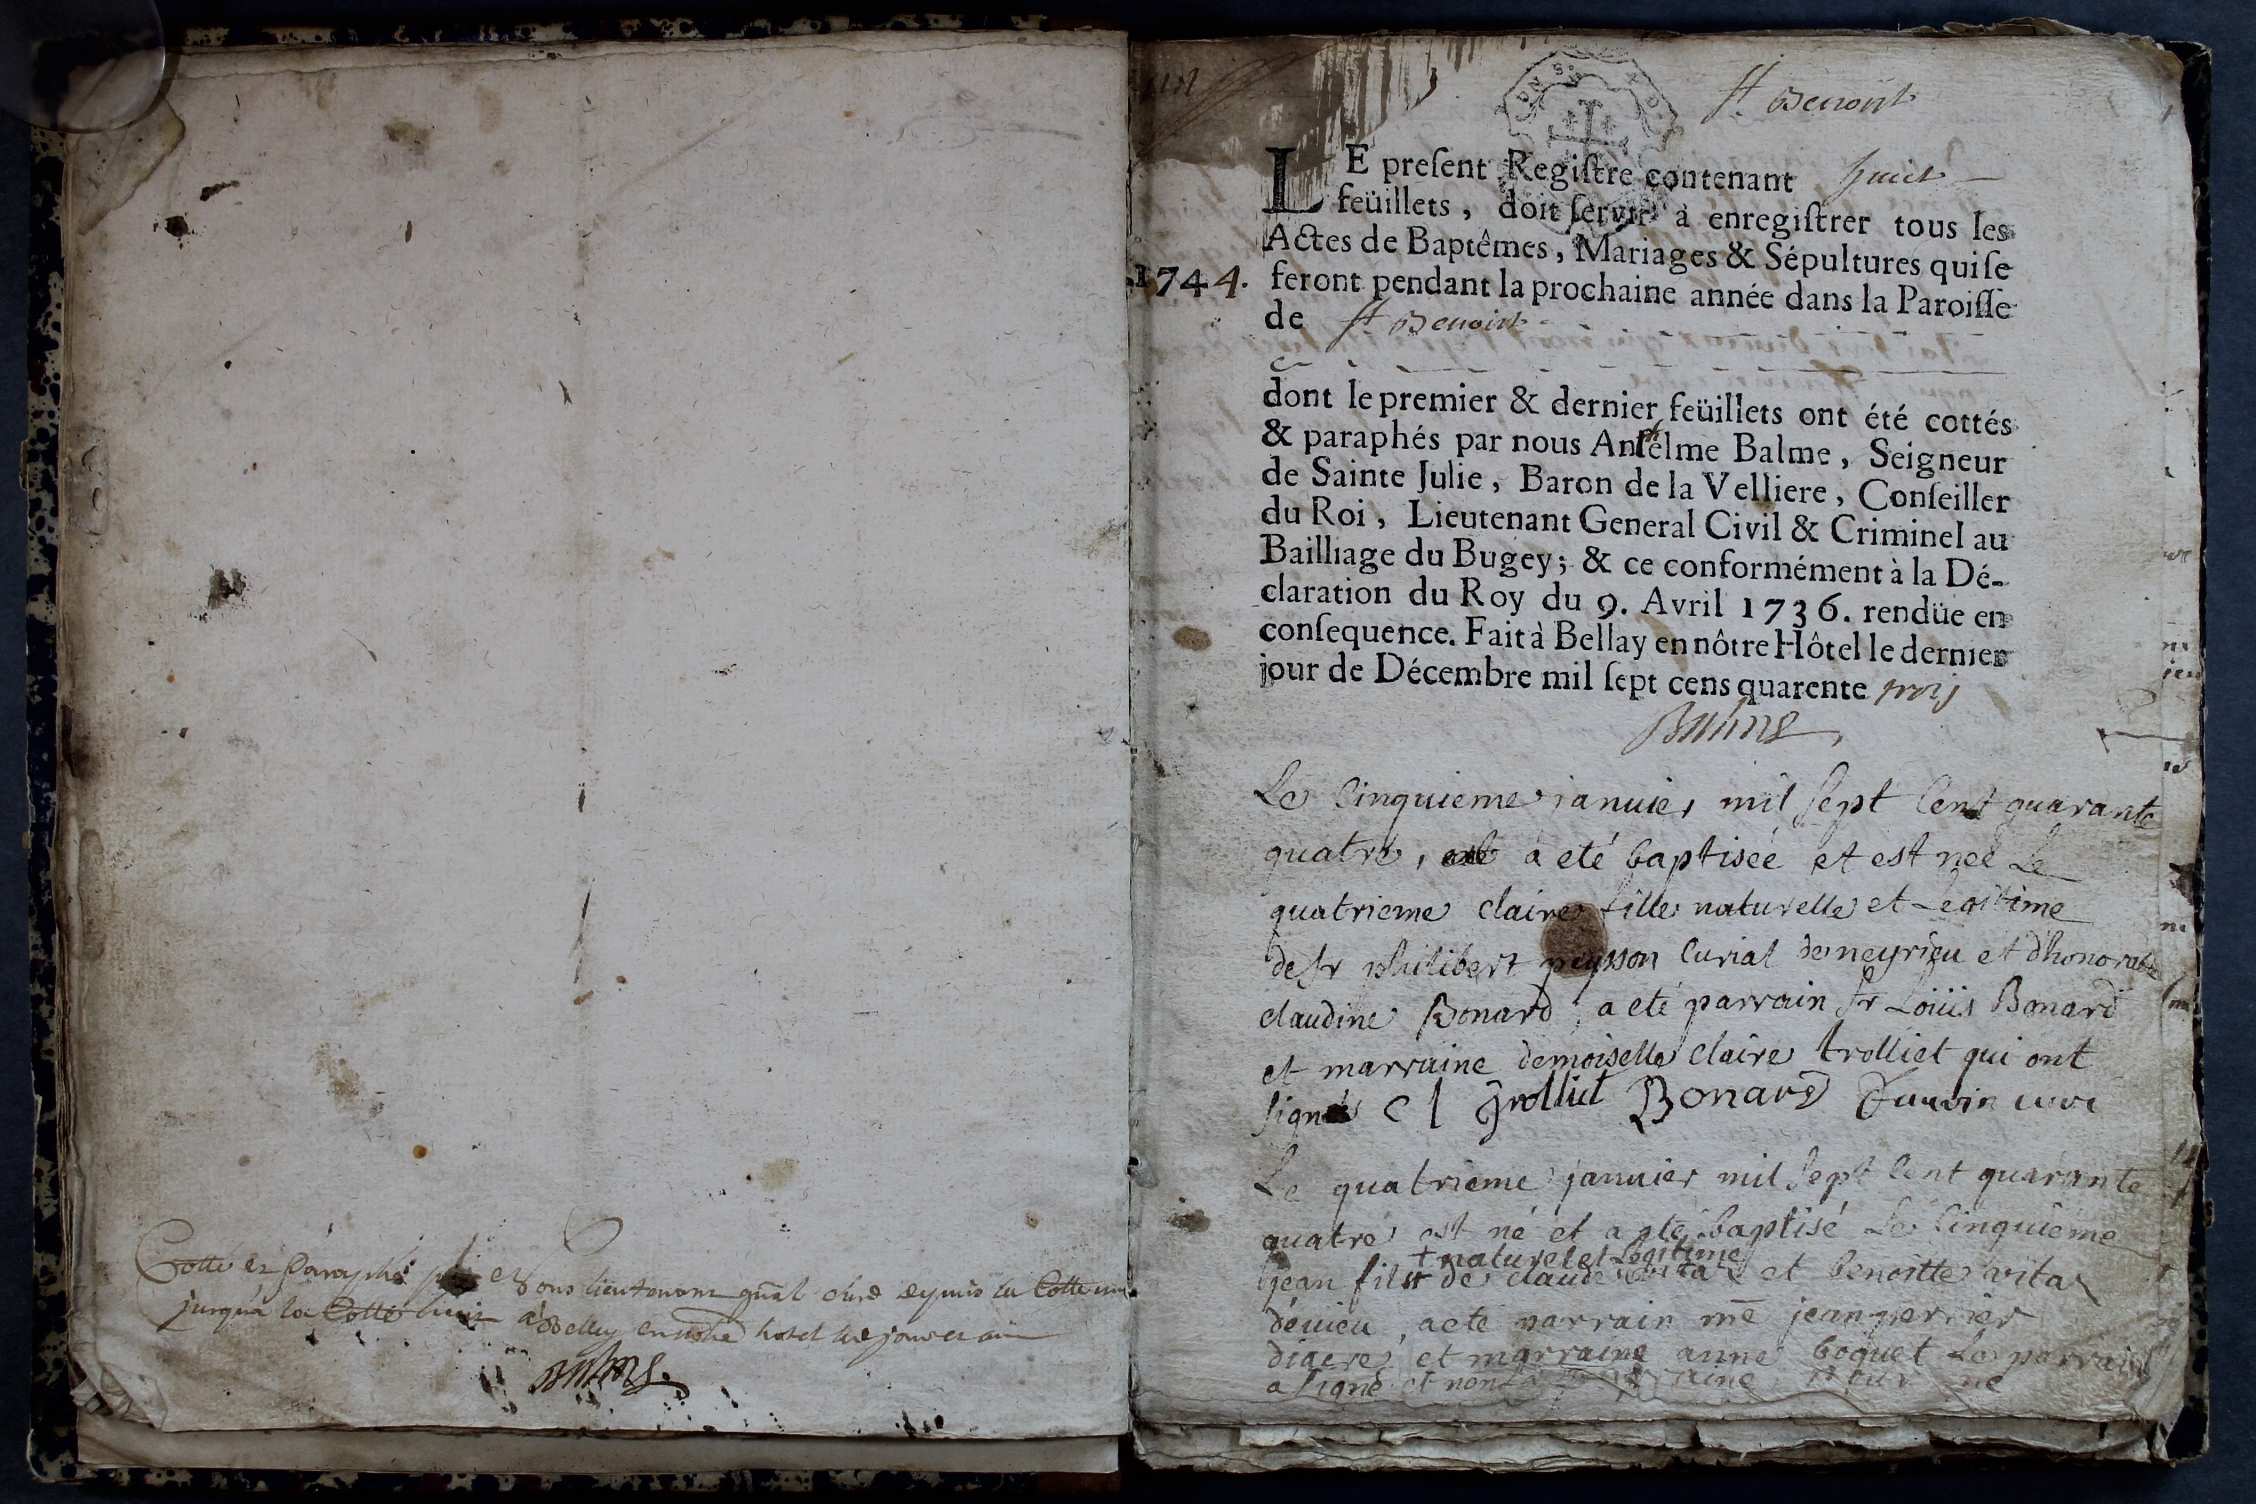 Cotté et Paraphé par Nous lieutenant gñal civil depuis la Cotte une
jusqu'a la Cotte huit à Belley en notre hotel les jour et an
Balme
St Benoist
LE preſent Regiſtre contenant huict
feüillets, doit ſervir à enregiſtrer tous les
Actes de Baptêmes, Mariages & Sépultures qui ſe
1744. feront pendant la prochaine année dans la Paroiſſe
de St Benoist
dont le premier & dernier feüillets ont été cottés
& paraphés par nous Anſelme Balme, Seigneur
de Sainte Julie, Baron de la Velliere, Conſeiller
du Roi, Lieutenant General Civil & Criminel au
Bailliage du Bugey; & ce conformément à la Dé-
claration du Roy du 9. Avril 1736. rendüe en
conſequence. Fait à Bellay en nôtre Hôtel le dernier
jour de Décembre mil ſept cens quarente trois
Balme
Le Cinquieme januier mil sept Cent quarante
quatre, a eté baptisée et est neé Le
quatrieme claire fille naturelle et Legitime
de sr philibert peysson Curial de neyrieu et d'honorable
claudine Bonard, a eté parrain sr Loüis Bonard
et marraine demoiselle claire trolliet qui ont
signés Cl Trolliet Bonard curé
Le quatrieme januier mil sept Cent quarante
quatre est né et a eté baptisé Le Cinquieme
+ naturel et Legitime
jean fils + de claude vita et benoitte vita
d'euieu, a eté parrain me jean perrier
diacre et marraine anne boquet Le parrain
a signé et non la marraine pour ne